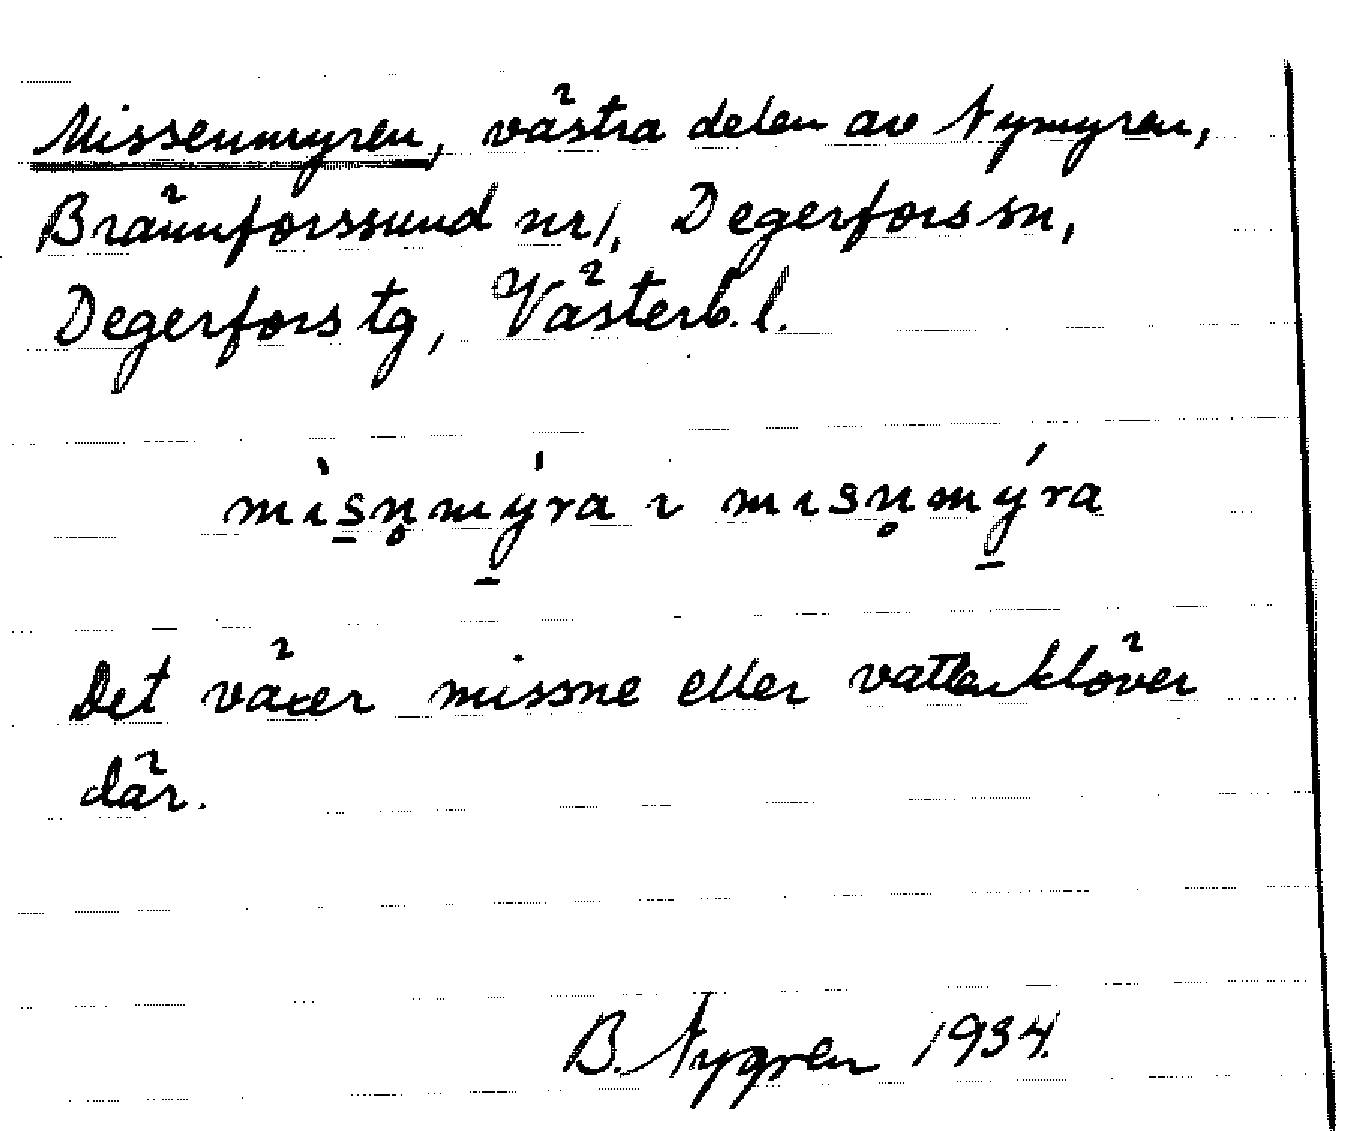 Missenmyren, västra delen av Nymyren,
Brännforssund nr 1, Degerfors sn,
Degerfors tg, Västerb. l.
mìs̲n̥mý̲ra ı mısn̥mý̲ra
Det växer missne eller vattenklöver
där.
B. Nygren 1934.